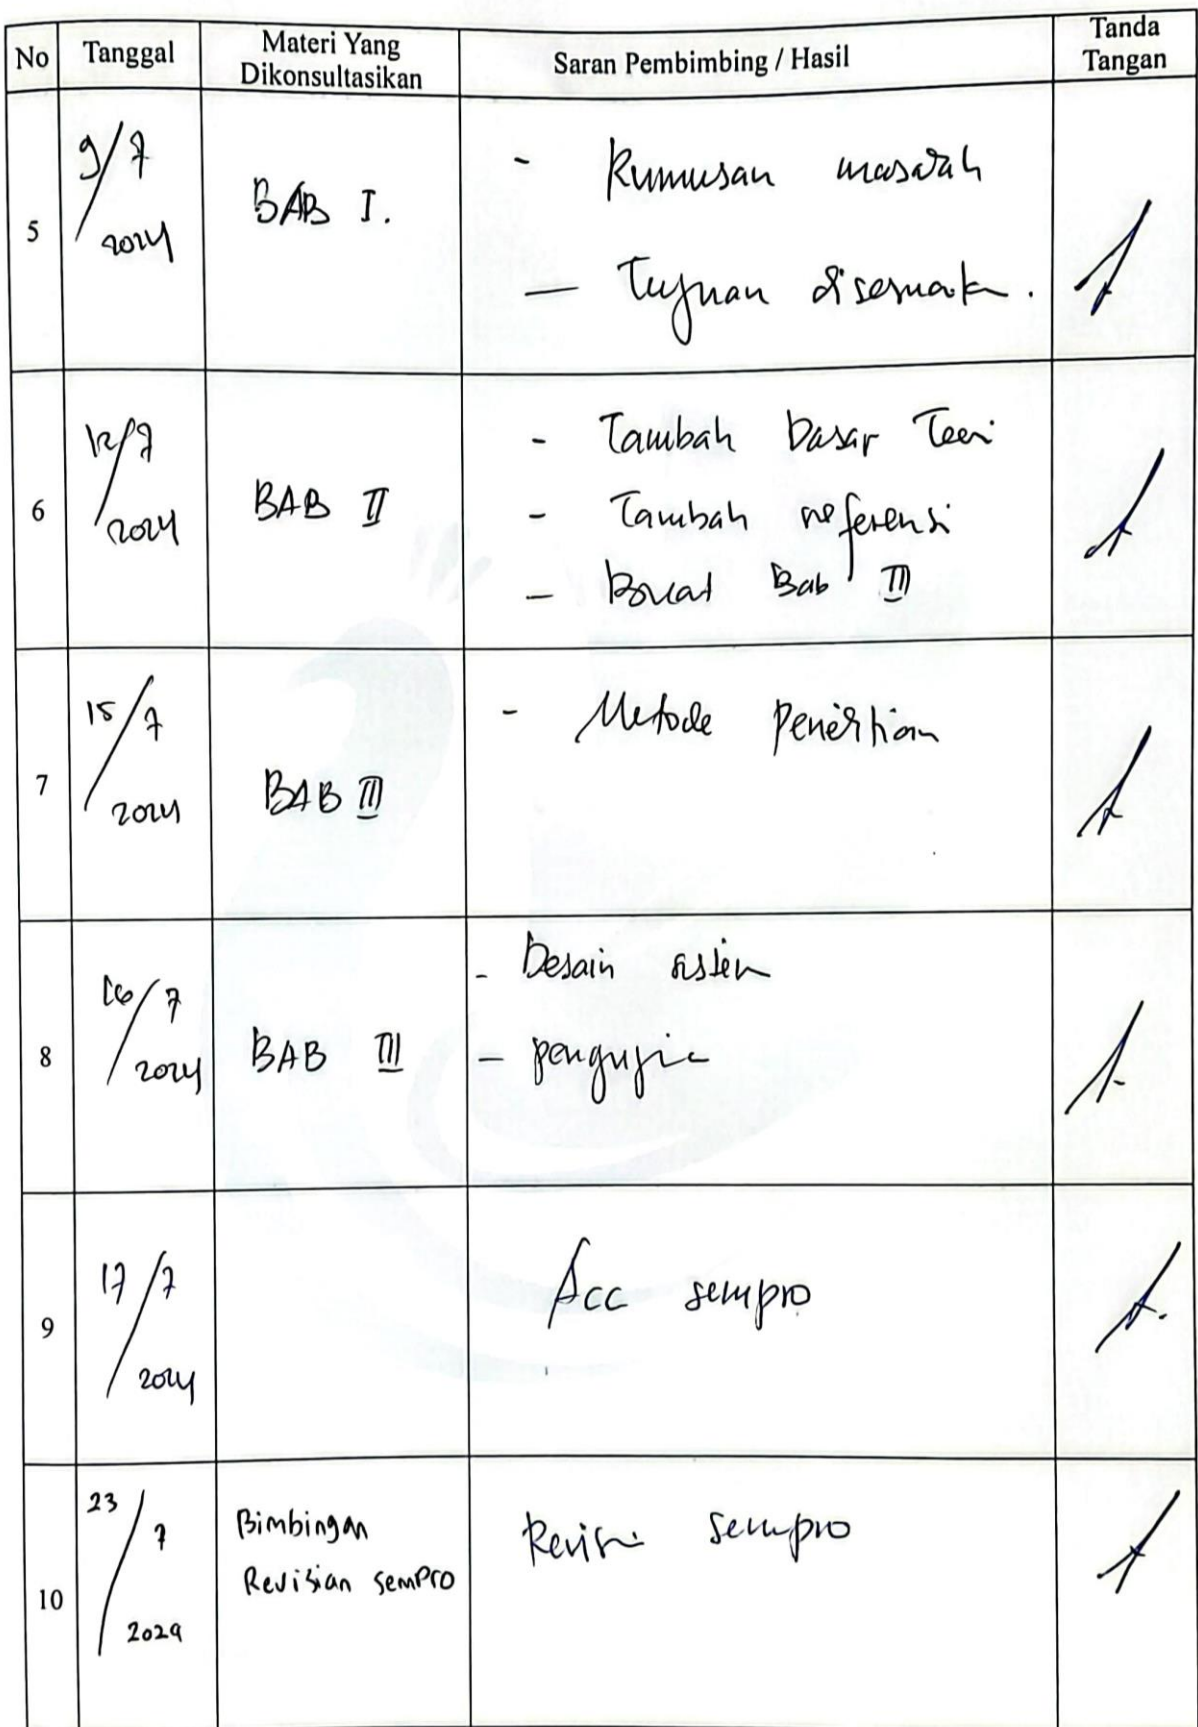 No Tanggal Materi Yang Dikonsultasikan Saran Pembimbing / Hasil Tanda Tangan
5 9/7 2024 BAB I. - Rumusan masalah
— Tujuan disesuaikan.
6 12/7 2024 BAB II - Tambah Dasar Teori
- Tambah referensi
- Buat Bab III
7 15/7 2024 BAB III - Metode Penelitian
8 16/7 2024 BAB III - Desain sistem
- pengujian
9 17/7 2024 Acc sempro
10 23/7 2024 Bimbingan Revisian semPro Revisi sempro